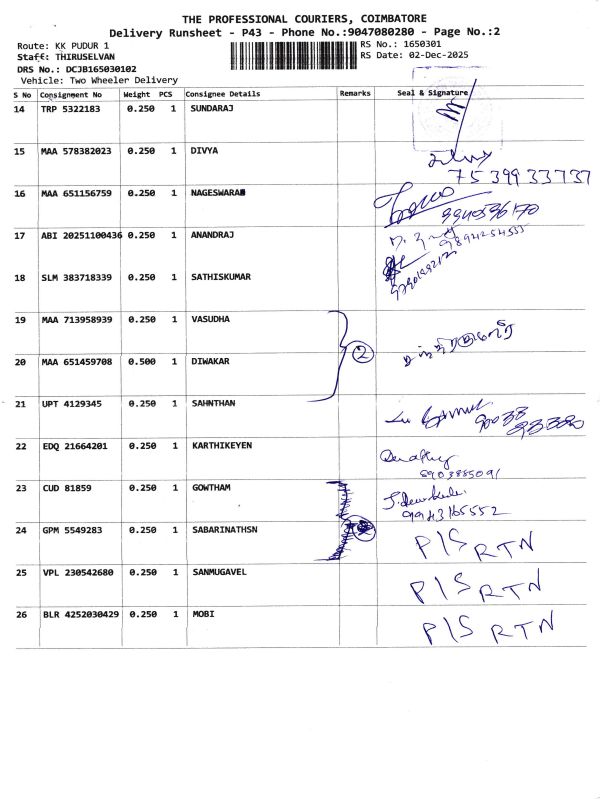 THE PROFESSIONAL COURIERS, COIMBATORE
Delivery Runsheet - P43 - Phone No.:9047080280 - Page No.:2
Route: KK PUDUR 1 RS No.: 1650301
Staff: THIRUSELVAN RS Date: 02-Dec-2025
DRS No.: DCJB165030102
Vehicle: Two Wheeler Delivery
S No Consignment No Weight PCS Consignee Details Remarks Seal & Signature
14 TRP 5322183 0.250 1 SUNDARAJ
15 MAA 578382023 0.250 1 DIVYA
7539933737
16 MAA 651156759 0.250 1 NAGESWARAN
9940596170
17 ABI 20251100436 0.250 1 ANANDRAJ
9894254555
18 SLM 383718339 0.250 1 SATHISKUMAR
19 MAA 713958939 0.250 1 VASUDHA
2
20 MAA 651459708 0.500 1 DIWAKAR
21 UPT 4129345 0.250 1 SAHNTHAN
22 EDQ 21664201 0.250 1 KARTHIKEYEN
8903885091
23 CUD 81859 0.250 1 GOWTHAM
9943165552
24 GPM 5549283 0.250 1 SABARINATHSN P/S RTN
25 VPL 230542680 0.250 1 SANMUGAVEL P/S RTN
26 BLR 4252030429 0.250 1 MOBI P/S RTN